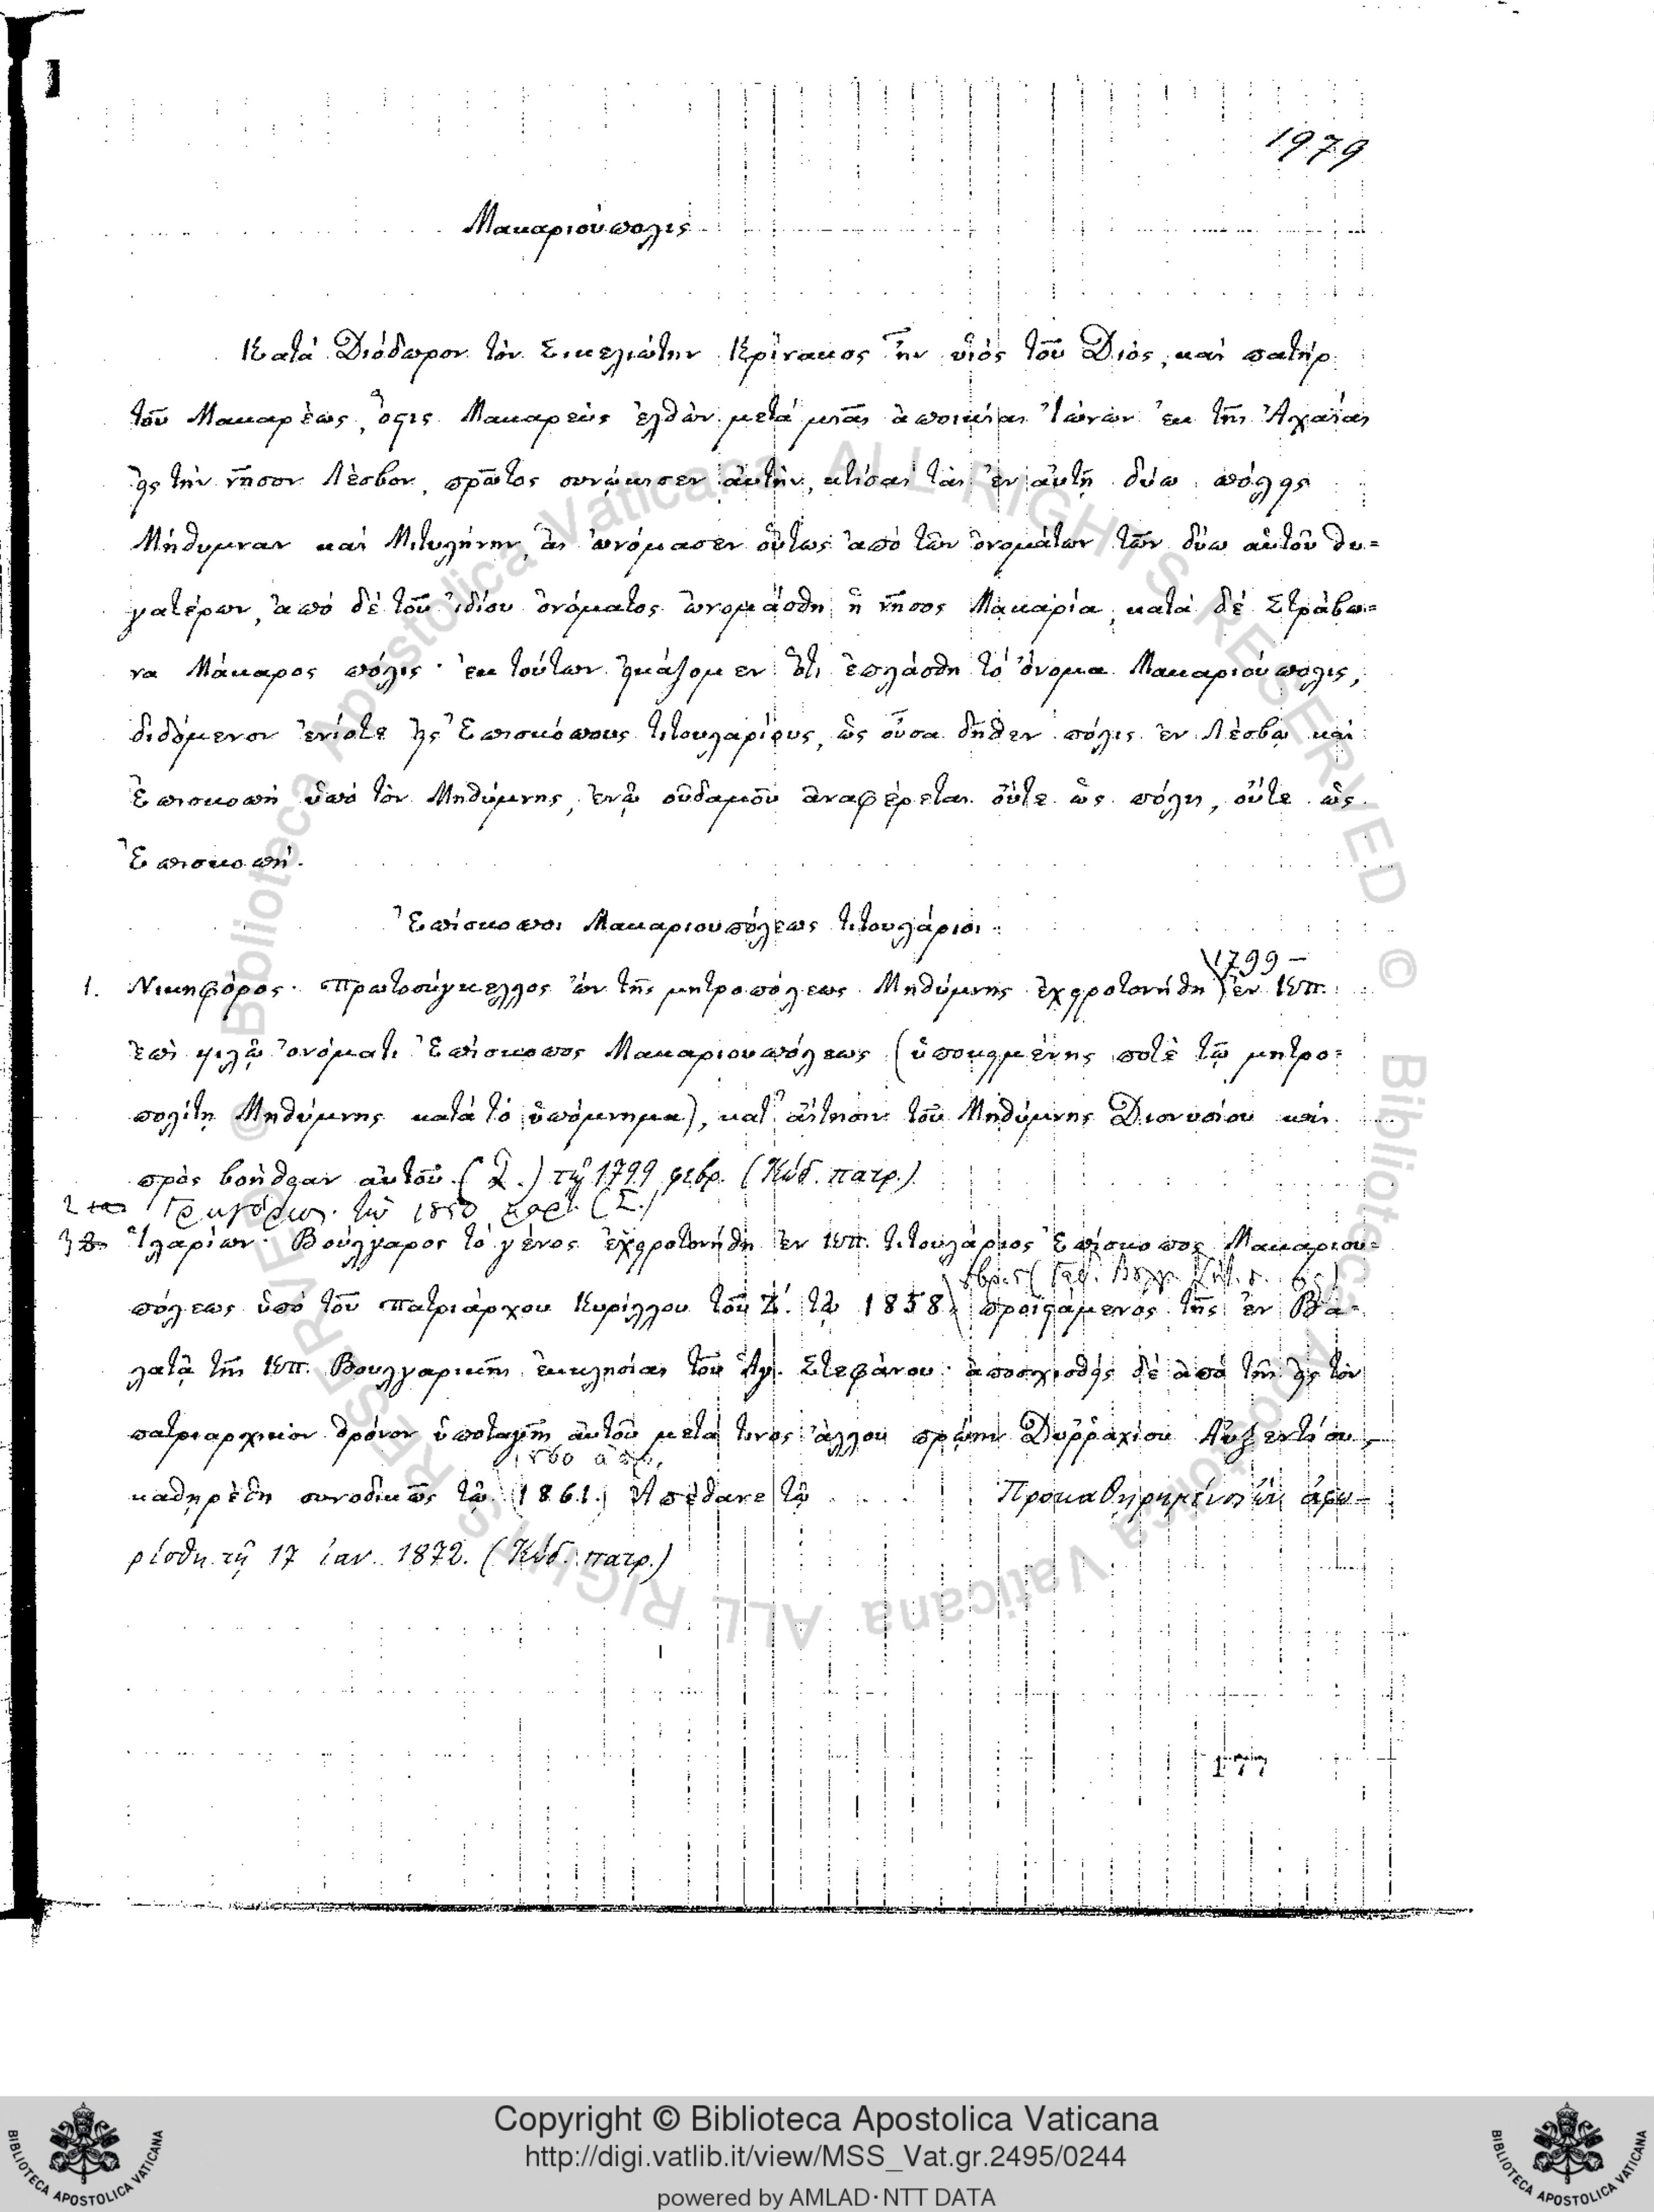 1979
Μακαριούπολις
Κατά Διόδωρον τόν Σικελιώτην Κρίνακος ἦν υἱός τοῦ Διός, καί πατήρ
τοῦ Μακαρέως, ὅςις Μακαρεύς ἐλθών μετά μιᾶς ἀποικίας Ἰώνων ἐκ τῆς Ἀχαΐας
εἰς τήν νῆσον Λέσβον, πρῶτος συνῴκισεν αὐτήν, κτίσας τάς ἐν αὐτῇ δύω πόλεις
Μήθυμναν καί Μιτυλήνην, ἅς ὠνόμασεν οὕτως ἀπό τῶν ὀνομάτων τῶν δύω αὐτοῦ θυ=
γατέρων, ἀπό δέ τοῦ ἰδίου ὀνόματος ὠνομάσθη ἡ νῆσος Μακαρία, κατά δέ Στράβω=
να Μάκαρος πόλις· ἐκ τούτων εἰκάζομεν ὅτι ἐπλάσθη τό ὄνομα Μακαριούπολις,
διδόμενον ἐνίοτε εἰς Ἐπισκόπους τιτουλαρίους, ὡς οὖσα δῆθεν πόλις ἐν Λέσβῳ καί
Ἐπισκοπή ὑπό τόν Μηθύμνης, ἐνῷ οὐδαμοῦ ἀναφέρεται οὔτε ὡς πόλις, οὔτε ὡς
Ἐπισκοπή.
Ἐπίσκοποι Μακαριουπόλεως τιτουλάριοι.
1799 –
1. Νικηφόρος· πρωτοσύγκελλος ὤν τῆς μητροπόλεως Μηθύμνης ἐχειροτονήθη ἐν Κπ.
ἐπί ψιλῷ ὀνόματι Ἐπίσκοπος Μακαριουπόλεως (ὑποκειμένης ποτέ τῷ μητρο=
πολίτῃ Μηθύμνης κατά τό ὑπόμνημα), κατ' αἴτησιν τοῦ Μηθύμνης Διονυσίου καί
πρός βοήθειαν αὐτοῦ (Σ.) τῇ 1799 φεβρ. (Κώδ. πατρ.)
2 Γρηγόριος τῷ 1850 (Σ.)
3 Ἱλαρίων· Βούλγαρος τό γένος ἐχειροτονήθη ἐν Κπ. τιτουλάριος Ἐπίσκοπος Μακαριου=
πόλεως ὑπό τοῦ πατριάρχου Κυρίλλου τοῦ Ζ΄. τῷ 1858, προϊςάμενος τῆς ἐν Βα=
λατᾷ τῆς Κπ. Βουλγαρικῆς ἐκκλησίας τοῦ Ἁγ. Στεφάνου· ἀποσχισθείς δέ ἀπό τῆς εἰς τόν
πατριαρχικόν θρόνον ὑποταγῆς αὐτοῦ μετά τινος ἄλλου πρώην Δυῤῥαχίου Αὐξεντίου,
καθῃρέθη συνοδικῶς τῷ 1861. Ἀπέθανε τῷ . . . . . Προκαθῃρημένος ὤν ἀφω–
ρίσθη τῇ 17 ἰαν. 1872. (Κώδ. πατρ.)
177
Copyright © Biblioteca Apostolica Vaticana
http://digi.vatlib.it/view/MSS_Vat.gr.2495/0244
powered by AMLAD·NTT DATA